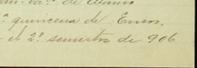 de
ª quincena de Enero.
el 2º semestre de 906